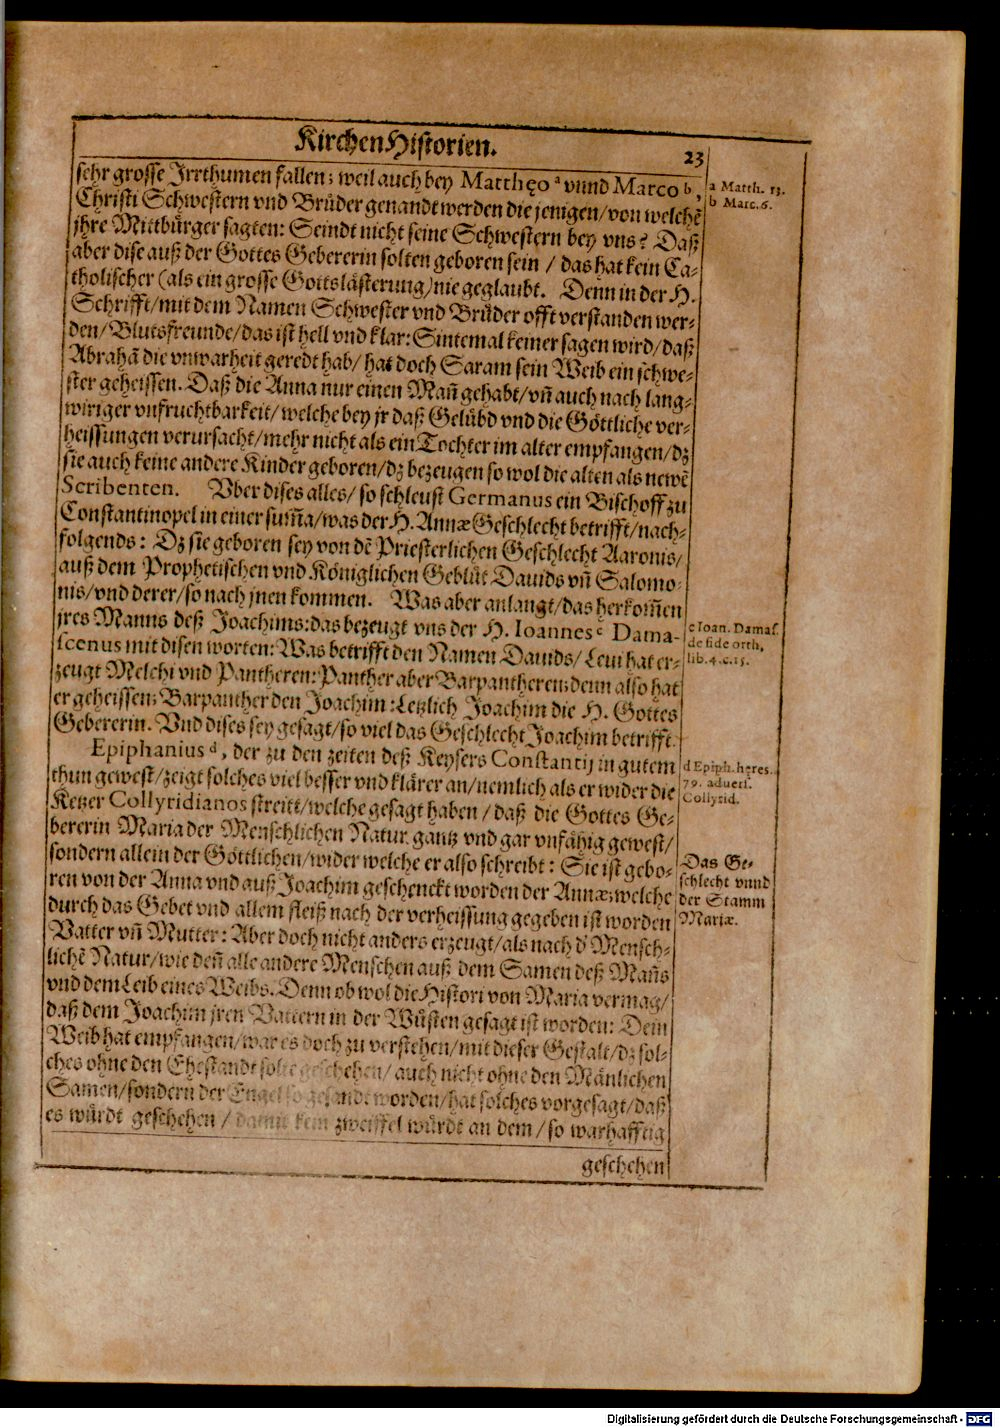 KirchenHistorien.
23
sehr grosse Jrrthumen fallen; weil auch bey Matthęo a vnnd Marco b,
Christi Schwestern vnd Brüder genandt werden die jenigen/von welchē
jhre Mittbürger sagten: Seindt nicht seine Schwestern bey vns? Daß
aber dise auß der Gottes Gebererin solten geboren sein / das hat kein Ca-
tholischer (als ein grosse Gottslästerung) nie geglaubt. Denn in der H.
Schrifft/mit dem Namen Schwester vnd Brüder offt verstanden wer-
den/Blutsfreunde/das ist hell vnd klar: Sintemal keiner sagen wird/daß
Abrahā die vnwarheit geredt hab/ hat doch Saram sein Weib ein schwe-
ster geheissen. Daß die Anna nur einen Mañ gehabt/vñ auch nach lang-
wiriger vnfruchtbarkeit/welche bey jr daß Gelübd vnd die Göttliche ver-
heissungen verursacht/mehr nicht als ein Tochter im alter empfangen/dz
sie auch keine andere Kinder geboren/dz bezeugen so wol die alten als newē
Scribenten. Vber dises alles/ so schleust Germanus ein Bischoff zu
Constantinopel in einer sum̃a/was der H. Annæ Geschlecht betrifft/nach-
folgends: Dz sie geboren sey von dē Priesterlichen Geschlecht Aaronis/
auß dem Prophetischen vnd Königlichen Geblüt Dauids vñ Salomo-
nis/vnd derer/so nach jnen kommen. Was aber anlangt/das herkom̃en
jres Manns deß Joachims:das bezeugt vns der H. Ioannes c Dama-
scenus mit disen worten: Was betrifft den Namen Dauids/Leui hat er-
zeugt Melchi vnd Pantheren:Panther aber Barpantheren;denn also hat
er geheissen; Barpanther den Joachim:Letzlich Joachim die H. Gottes
Gebererin. Vnd dises sey gesagt/so viel das Geschlecht Joachim betrifft.
Epiphanius d, der zu den zeiten deß Keysers Constantij in gutem
thun gewest/zeigt solches viel besser vnd klärer an/nemlich als er wider die
Ketzer Collyridianos streitt/welche gesagt haben / daß die Gottes Ge-
bererin Maria der Menschlichen Natur gantz vnd gar vnfähig gewest/
sondern allein der Göttlichen/wider welche er also schreibt: Sie ist gebo-
ren von der Anna vnd auß Joachim geschenckt worden der Annæ;welche
durch das Gebet vnd allem fleiß nach der verheissung gegeben ist worden
Vatter vñ Mutter: Aber doch nicht anders erzeugt/als nach d' Mensch-
lichē Natur/wie deñ alle andere Menschen auß dem Samen deß Mañs
vnd dem Leib eines Weibs. Denn ob wol die Histori von Maria vermag/
daß dem Joachim jren Vattern in der Wüsten gesagt ist worden: Dein
Weib hat empfangen/war es doch zu verstehen/mit dieser Gestalt/dz sol-
ches ohne den Ehestandt solte geschehen/ auch nicht ohne den Mänlichen
Samen/sondern der Engel so gesandt worden/hat solches vorgesagt/daß
es würdt geschehen / damit kein zweiffel würdt an dem/so warhafftig
geschehen
a Matth. 13.
b Marc. 6.
c Ioan. Damas.
de fide orth.
lib. 4. c. 15.
d Epiph. hęres.
79. aduers.
Collyrid.
Das Ge-
schlecht vnnd
der Stamm
Mariæ.
Digitalisierung gefördert durch die Deutsche Forschungsgemeinschaft - DFG